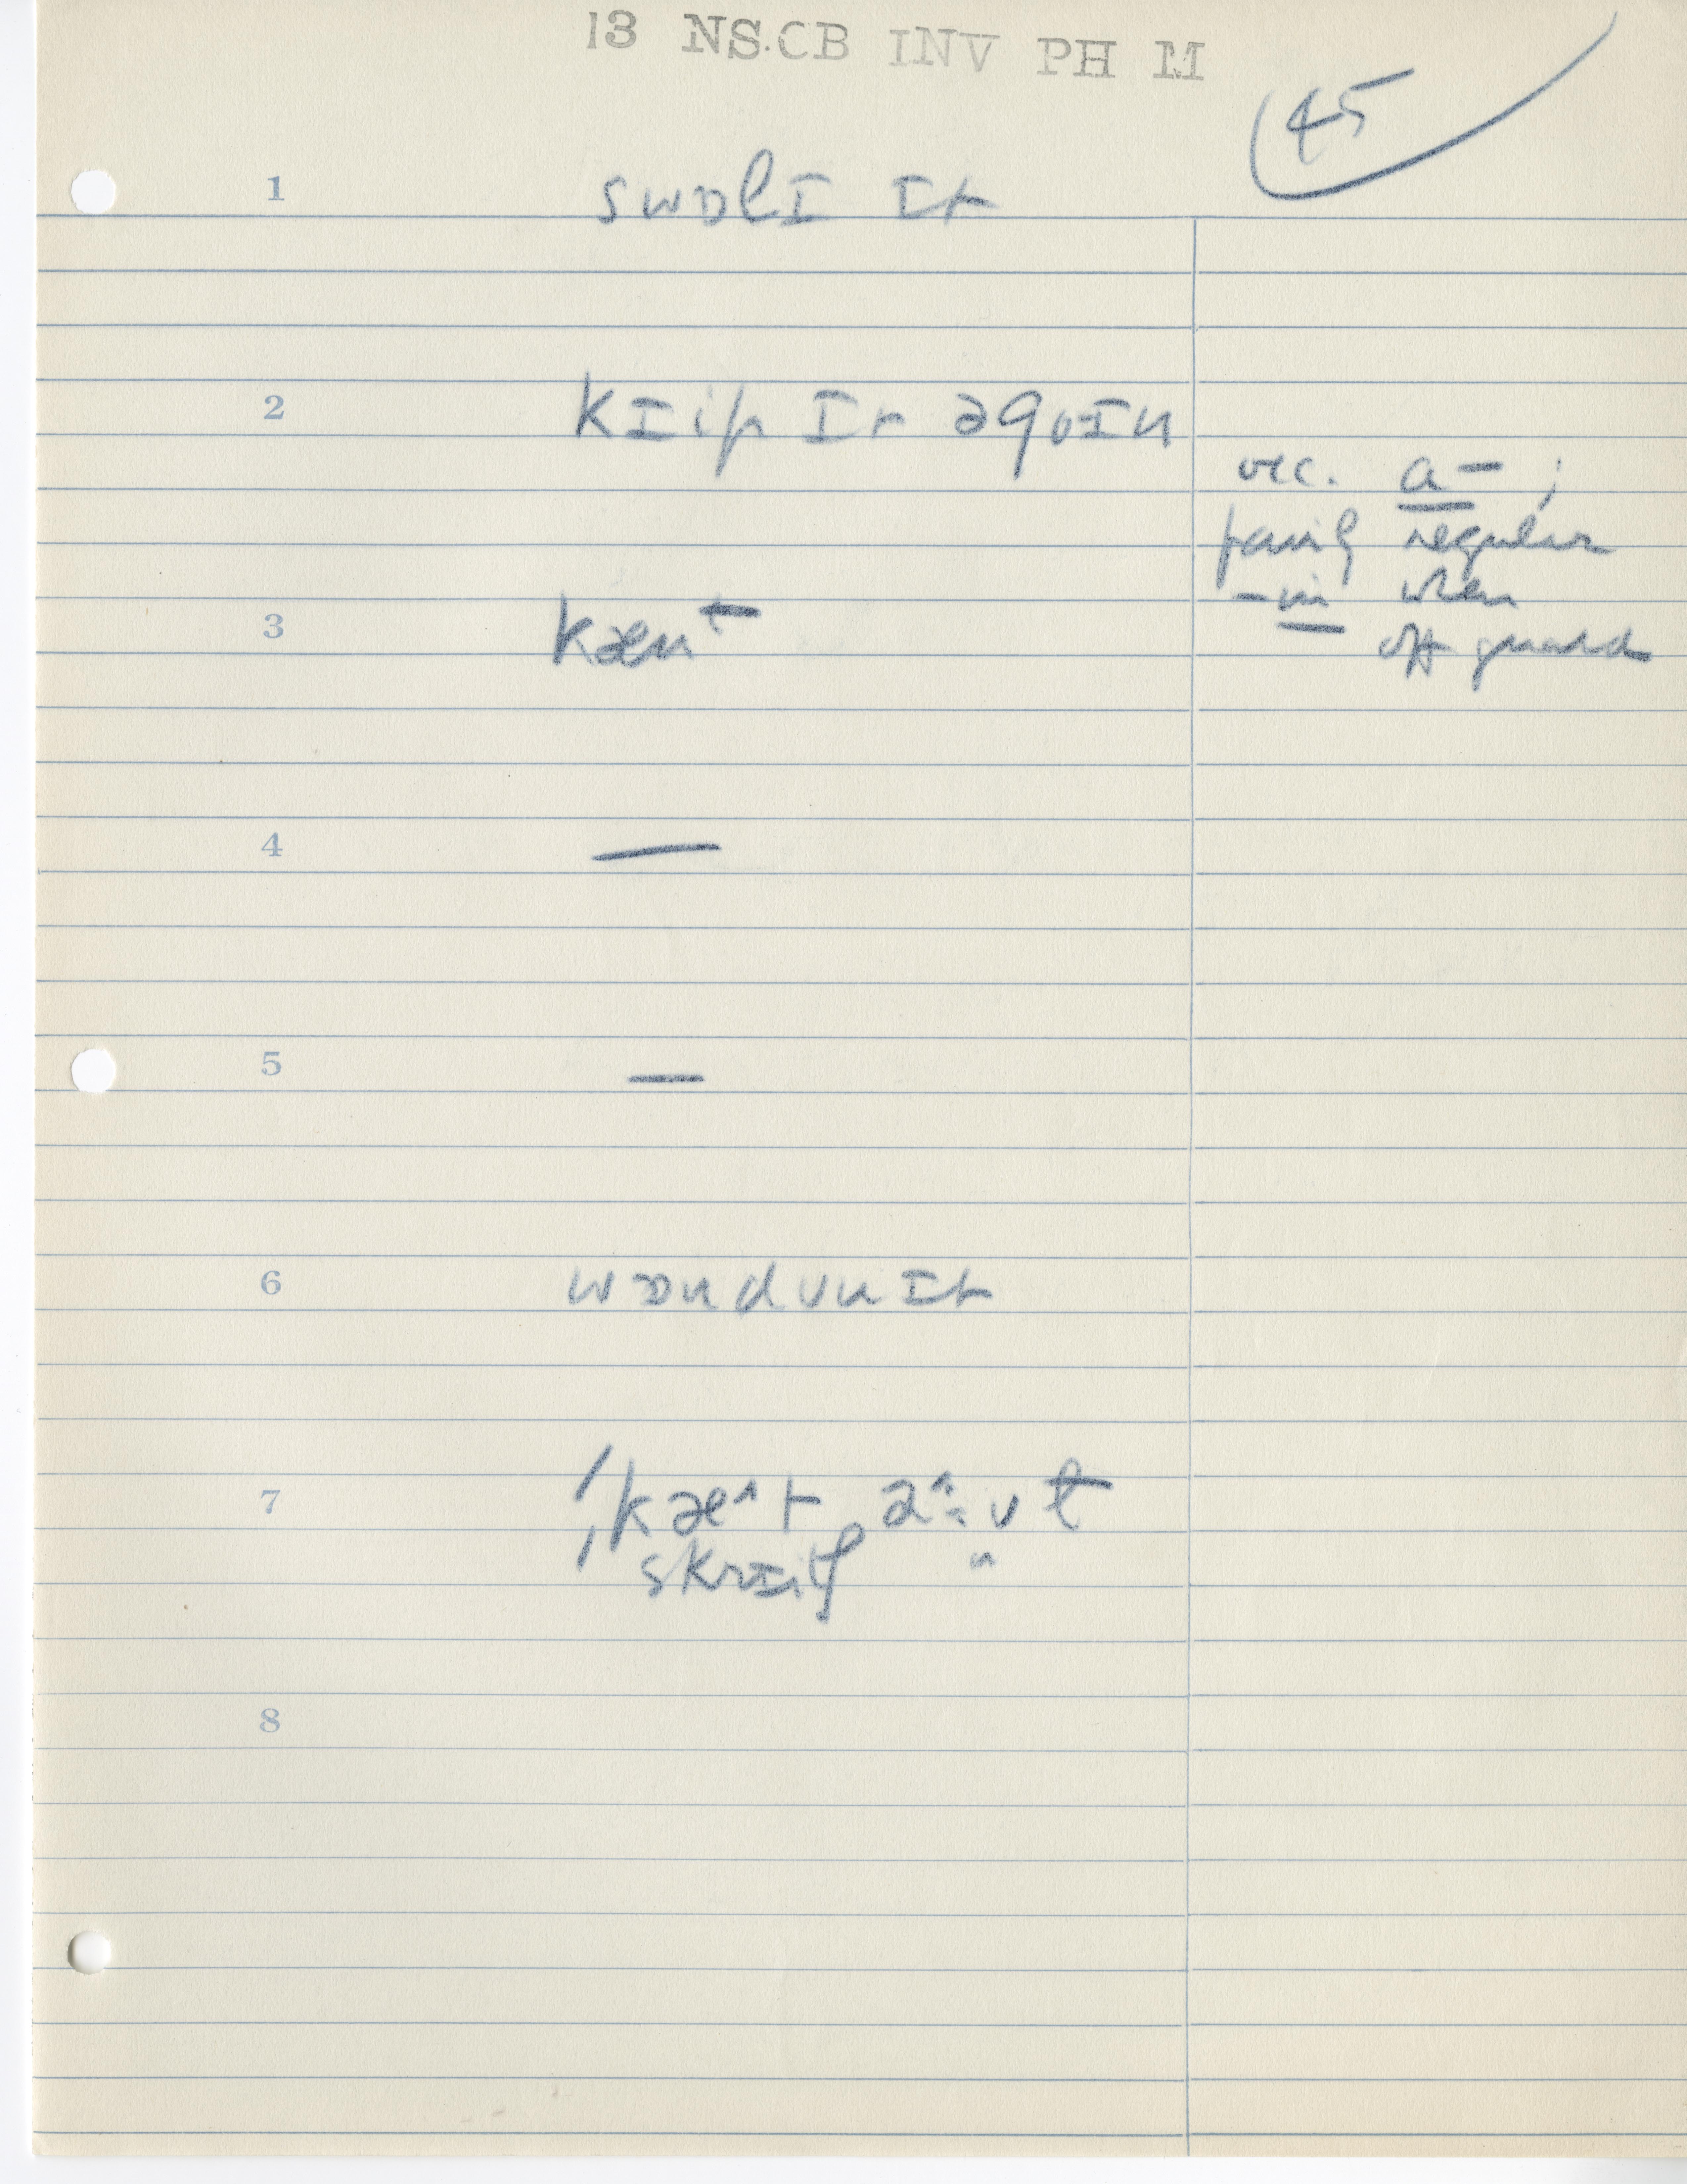 13 NS.CB INV PH M
45
1 swɒlɪ ɪt
2 kɪip ɪt əgoɪn
occ. a- ;
fairly regular
-in when
off guard
3 kænt
4 —
5 —
6 wɒnd
7 kæ^t
skrɪitʃ "
8